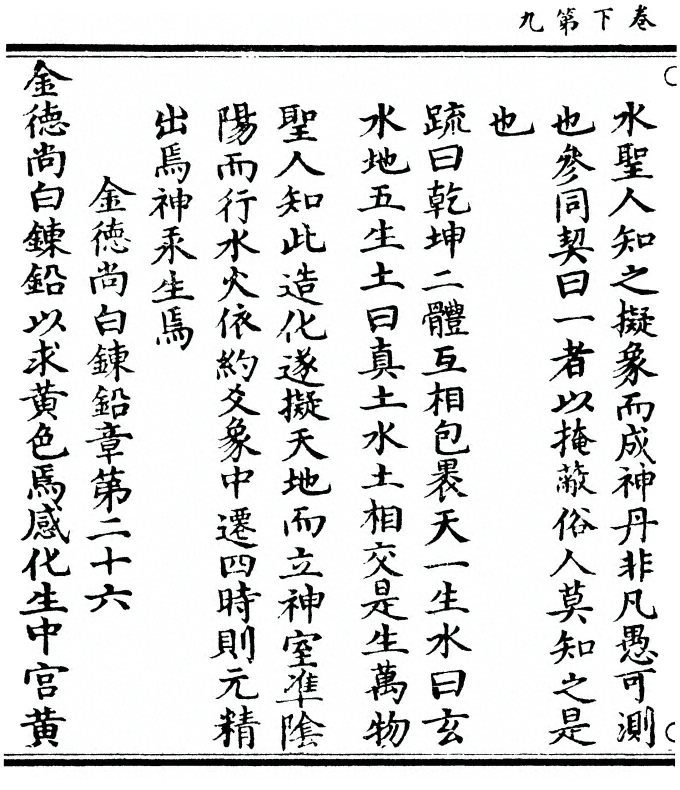 卷下第九
水聖人知之擬象而成神丹非凡愚可測
也參同契曰一者以掩蔽俗人莫知之是
也
疏曰乾坤二體互相包褁天一生水曰玄
水地五生土曰真土水土相交是生萬物
聖人知此造化遂擬天地而立神室準陰
陽而行水火依約爻象中遷四時則元精
出焉神汞生焉
金德尚白鍊鉛章第二十六
金德尚白鍊鉛以求黃色焉感化生中宮黃